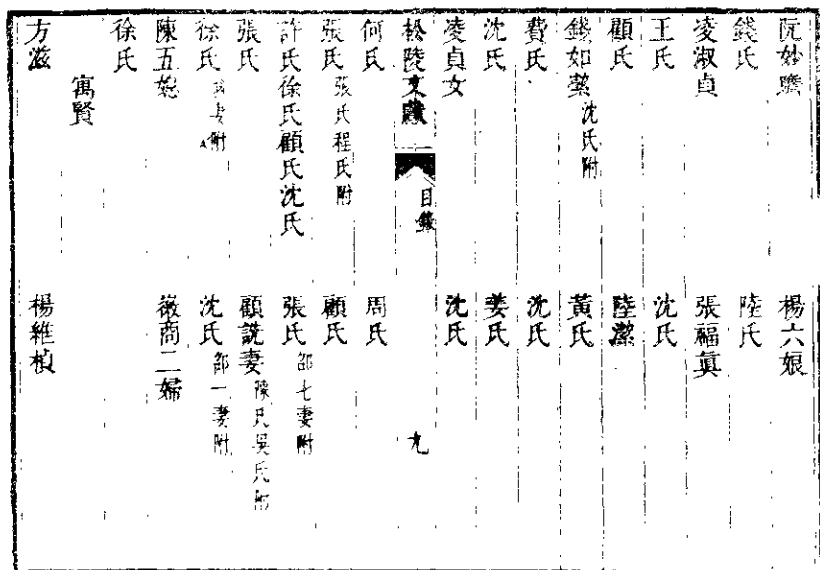 阮妙贍 楊六娘
錢氏 陸氏
凌淑貞 張福眞
王氏 沈氏
顧氏 陸潔
錢如瑩沈氏附 黃氏
費氏 沈氏
沈氏 姜氏
凌貞女 沈氏
松陵文獻 目錄 九
何氏 周氏
張氏張氏程氏附 顧氏
許氏徐氏顧氏沈氏 張氏邵七妻附
張氏 顧説妻陳氏吳氏附
徐氏 妻附 沈氏邵一妻附
陳五娘 徽商二婦
徐氏
寓賢
方滋 楊維楨